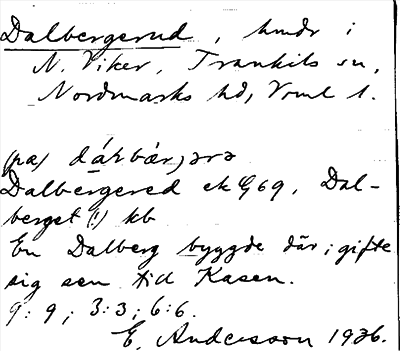 Dalbergerud, hmdr i
N. Viker, Trankils sn,
Nordmarks hd, Vrml l.
(pa)
Dalbergered ek G69, Dal-
berget (!) kb
En Dalberg byggde där; gifte
sig sen till Kasen.
9:9; 3:3; 6:6.
E. Andersson 1936.